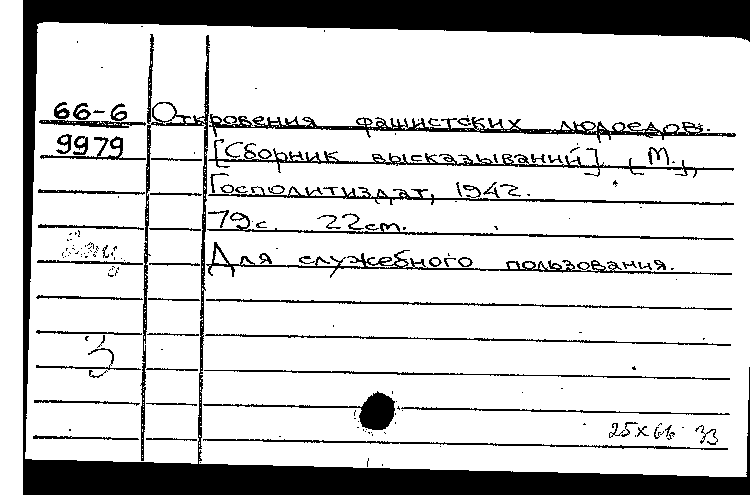 66-6 Откровения фашистских людоедов.
9979 [Сборник высказываний]. [М.],
Госполитиздат, 1942.
79с. 22см.
Для служебного пользования.
3
25 X 66 33